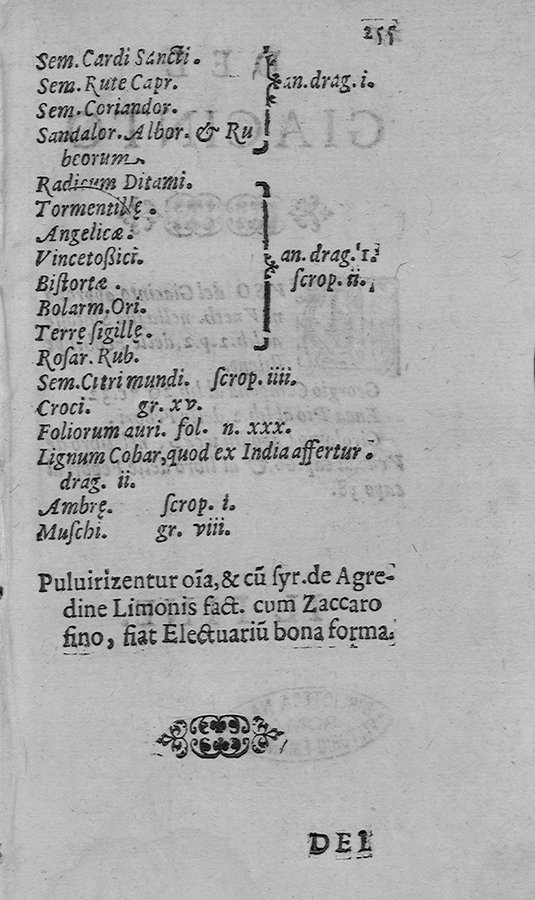 255
Sem. Cardi Sancti.
Sem. Rute Capr.
an. drag. i.
Sem. Coriandor.
Sandalor. Albor. & Ru
beorum.
Radicum Ditami.
Tormentillę.
Angelicæ.
Vincetoßici.
an. drag. 1.
Bistortæ.
scrop. ii.
Bolarm. Ori.
Terrę sigillę.
Rosar. Rub.
Sem. Citri mundi. scrop. iiii.
Croci. gr. xv.
Foliorum auri. fol. n. xxx.
Lignum Cobar, quod ex India affertur.
drag. ii.
Ambrę. scrop. i.
Muschi. gr. viii.
Puluirizentur oīa, & cū syr. de Agre-
dine Limonis fact. cum Zaccaro
fino, fiat Electuariū bona forma.
DEL